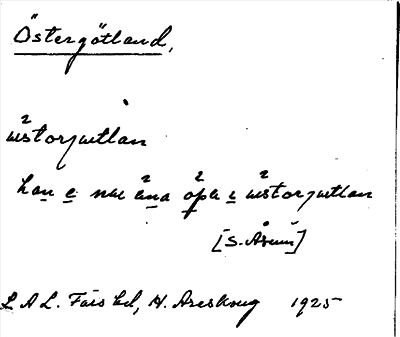 Östergötland,
östorjøtlan
han e nu ena öpa i östorjøtlan
[S. Åsum]
L A L. Färs hd, H. Areskoug 1925